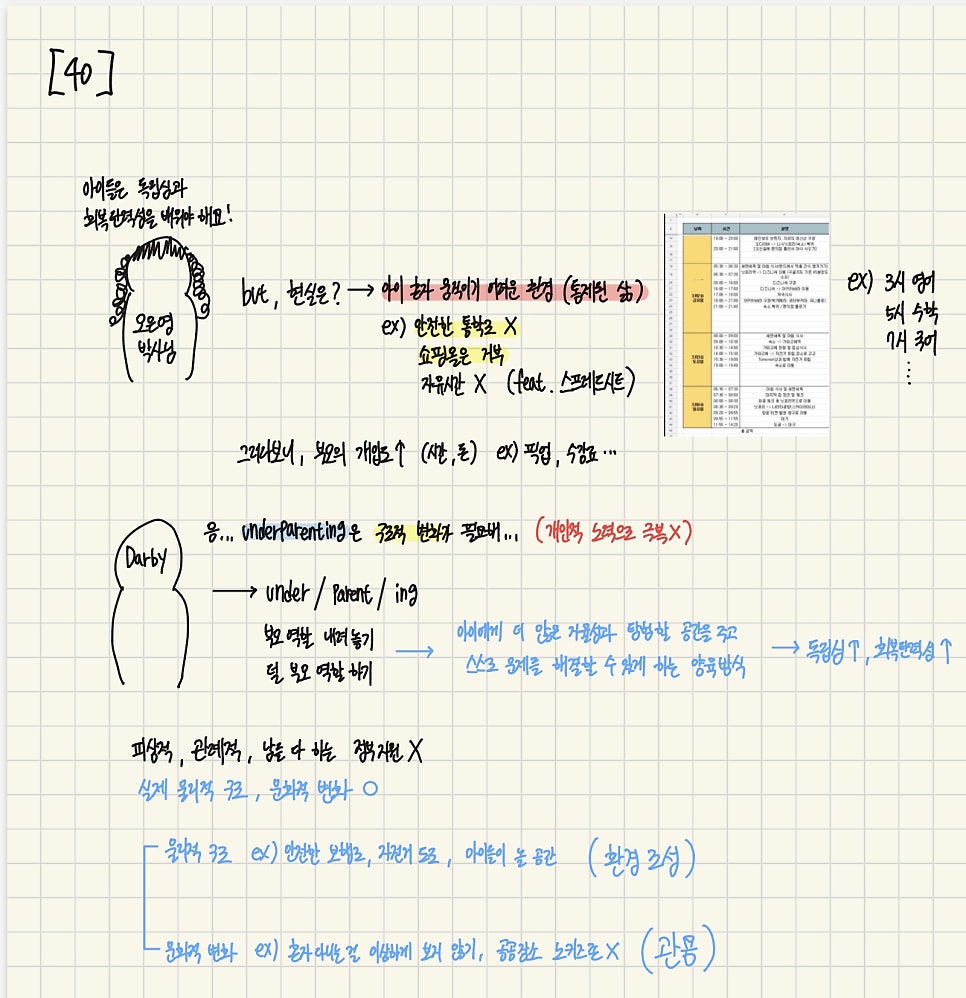 [40]
아이들은 독립심과
회복탄력성을 배워야 해요!
오은영
박사님
but, 현실은? → 아이 혼자 움직이기 어려운 환경 (통제된 삶)
ex) 안전한 통학로 X
쇼핑몰은 거부
자유시간 X (feat. 스프레드시트)
ex) 3시 영어
5시 수학
7시 국어
⋮
그러다보니, 부모의 개입도↑ (시간, 돈) ex) 픽업, 수강료…
Darby
음... underparenting은 구조적 변화가 필요해... (개인적 노력으로 극복X)
→ under / parent / ing
부모 역할 내려 놓기
덜 부모 역할 하기
→ 아이에게 더 많은 자율성과 탐험할 공간을 주고
스스로 문제를 해결할 수 있게 하는 양육방식
→ 독립심↑, 회복탄력성↑
피상적, 관례적, 남들 다 하는 정부지원 X
실제 물리적 구조, 문화적 변화 O
물리적 구조 ex) 안전한 보행로, 자전거 도로, 아이들이 놀 공간 (환경 조성)
문화적 변화 ex) 혼자 다니는걸 이상하게 보지 않기, 공공장소 노키즈존 X (관용)